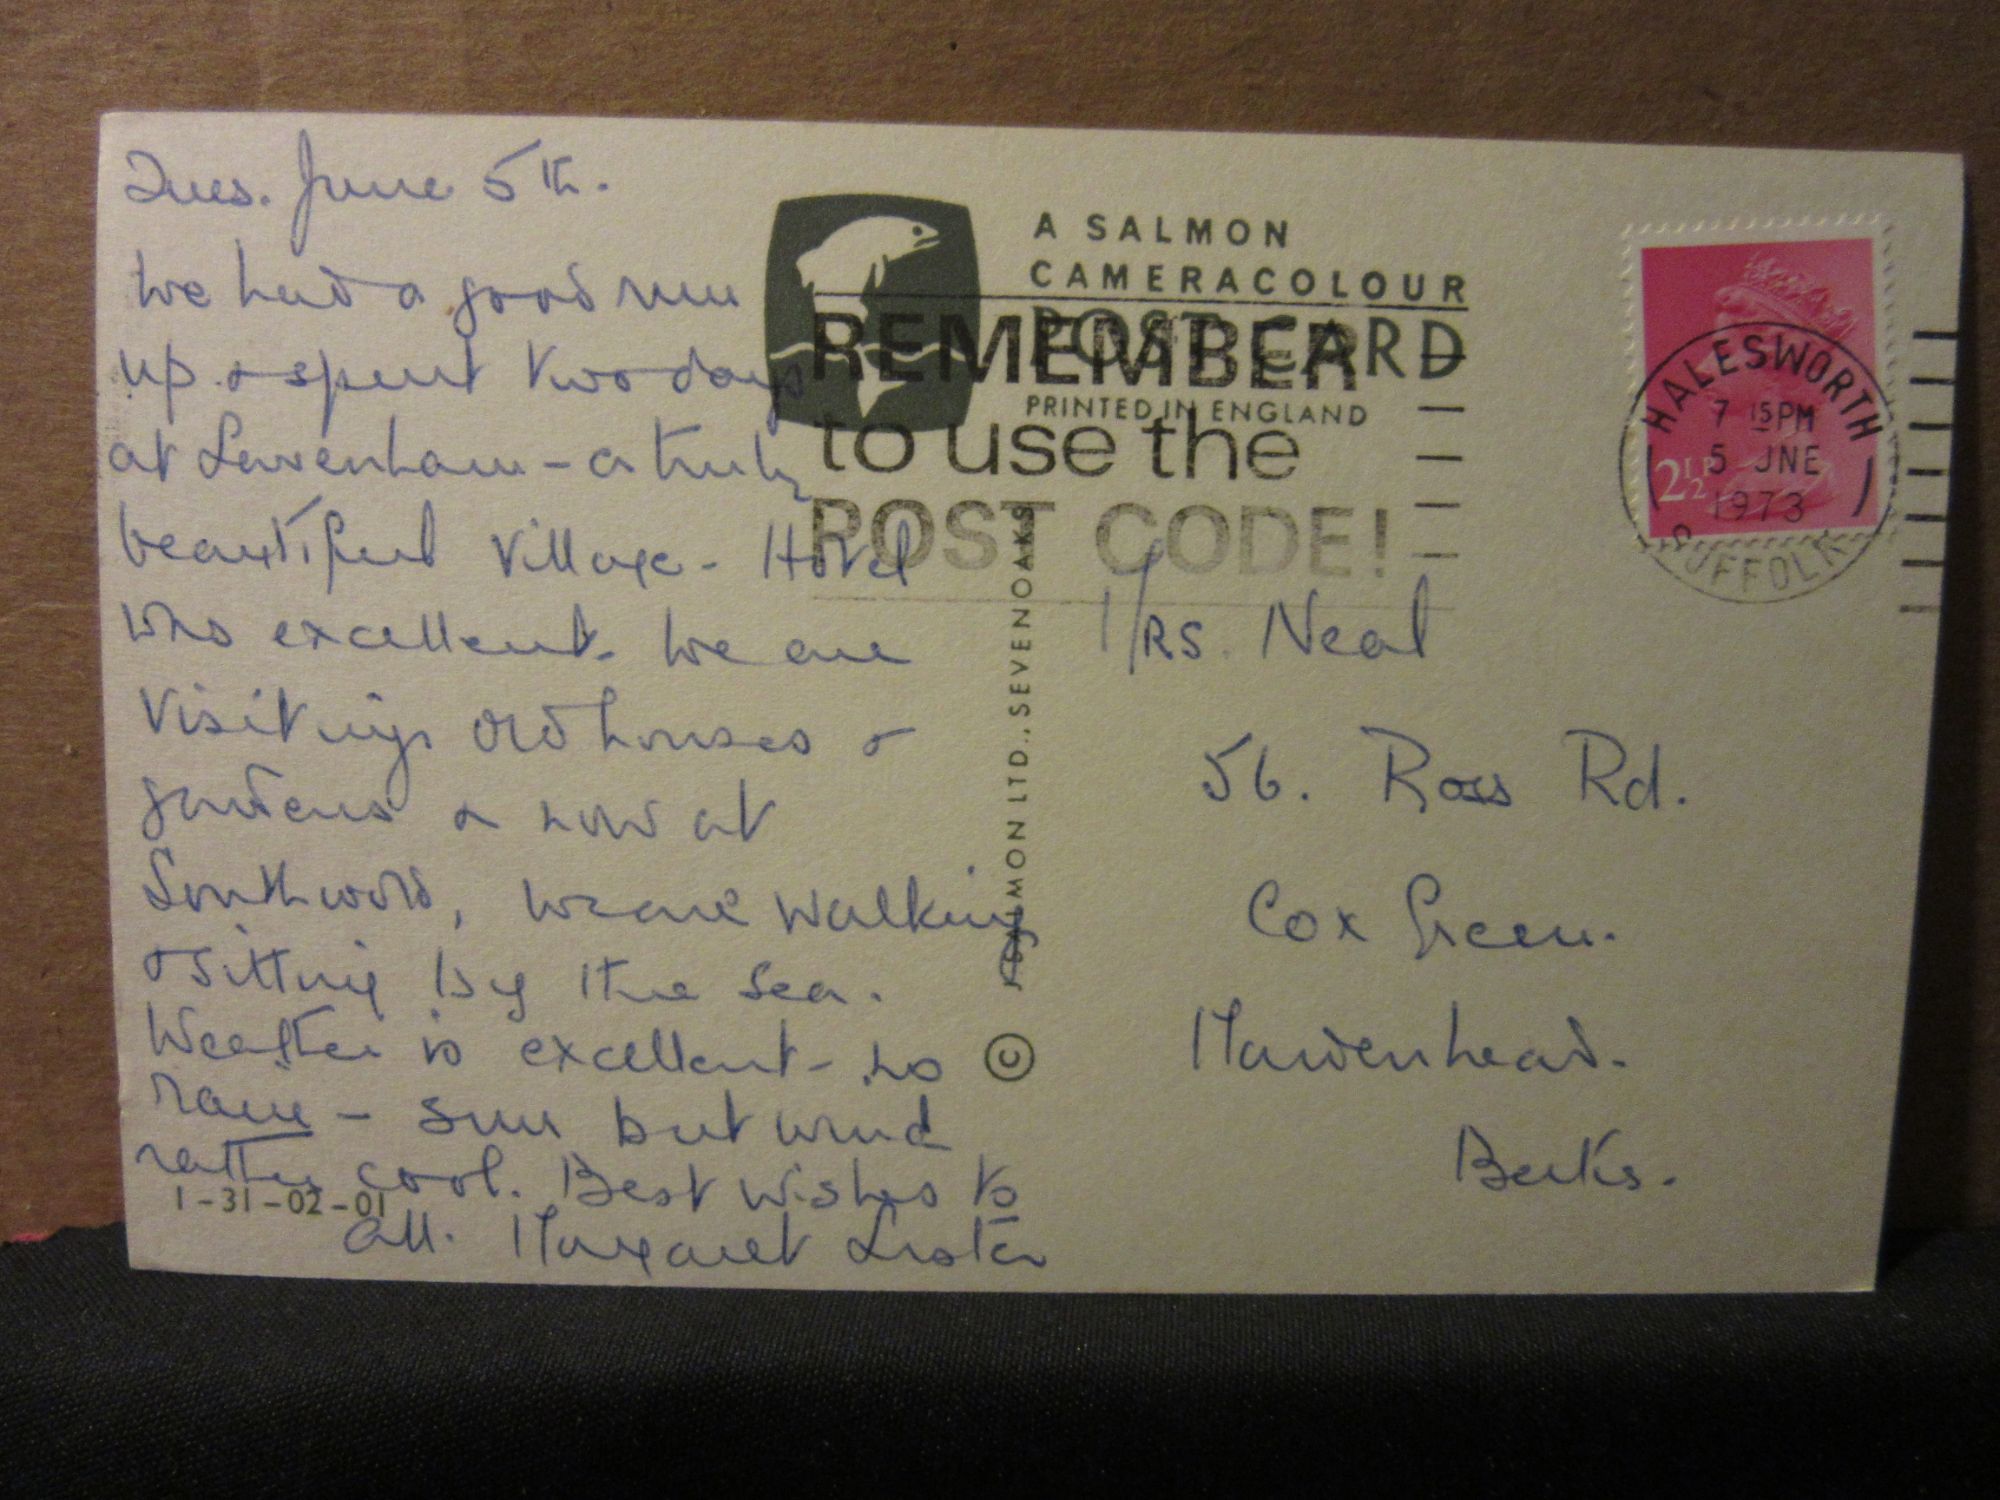 Tues. June 5th.
We had a good run
up & spent two days
at Lavenham - a truly
beautiful village - Hotel
was excellent. We are
visiting old houses &
gardens & now at
Southwold, we are walking
& sitting by the sea.
Weather is excellent - no
rain - sun but wind
rather cool. Best wishes to
all. Margaret Lister
1-31-02-01
A SALMON
CAMERACOLOUR
POST CARD
PRINTED IN ENGLAND
REMEMBER
to use the
POST CODE!
J SALMON LTD., SEVENOAKS
©
HALESWORTH
7 15 PM
5 JNE
1973
SUFFOLK
2½P
Mrs. Neal
56. Ross Rd.
Cox Green.
Maidenhead.
Berks.